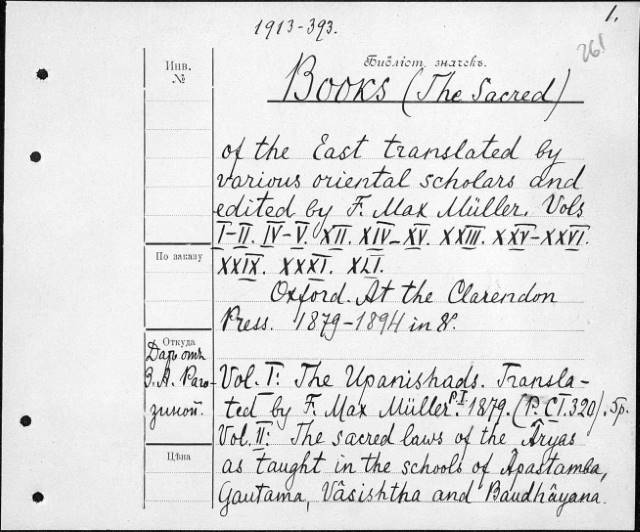 1913-393.
1.
261
Инв.
№
Библіот. значекъ.
Books (The Sacred)
of the East translated by
various oriental scholars and
edited by F. Max Müller. Vols
I-II. IV-V. XII. XIV-XV. XXIII. XXV-XXVI.
XXIX. XXXI. XLI.
По заказу
Oxford. At the Clarendon
Press. 1879-1894 in 8º.
Откуда
Даръ отъ
З. А. Раго-
зиной.
Vol. I: The Upanishads. Transla-
ted by F. Max Müller. p. I. 1879. (P. CI. 320). бр.
Vol. II: The sacred laws of the Âryas
Цѣна
as taught in the schools of Âpastamba,
Gautama, Vâsishtha and Baudhâyana.